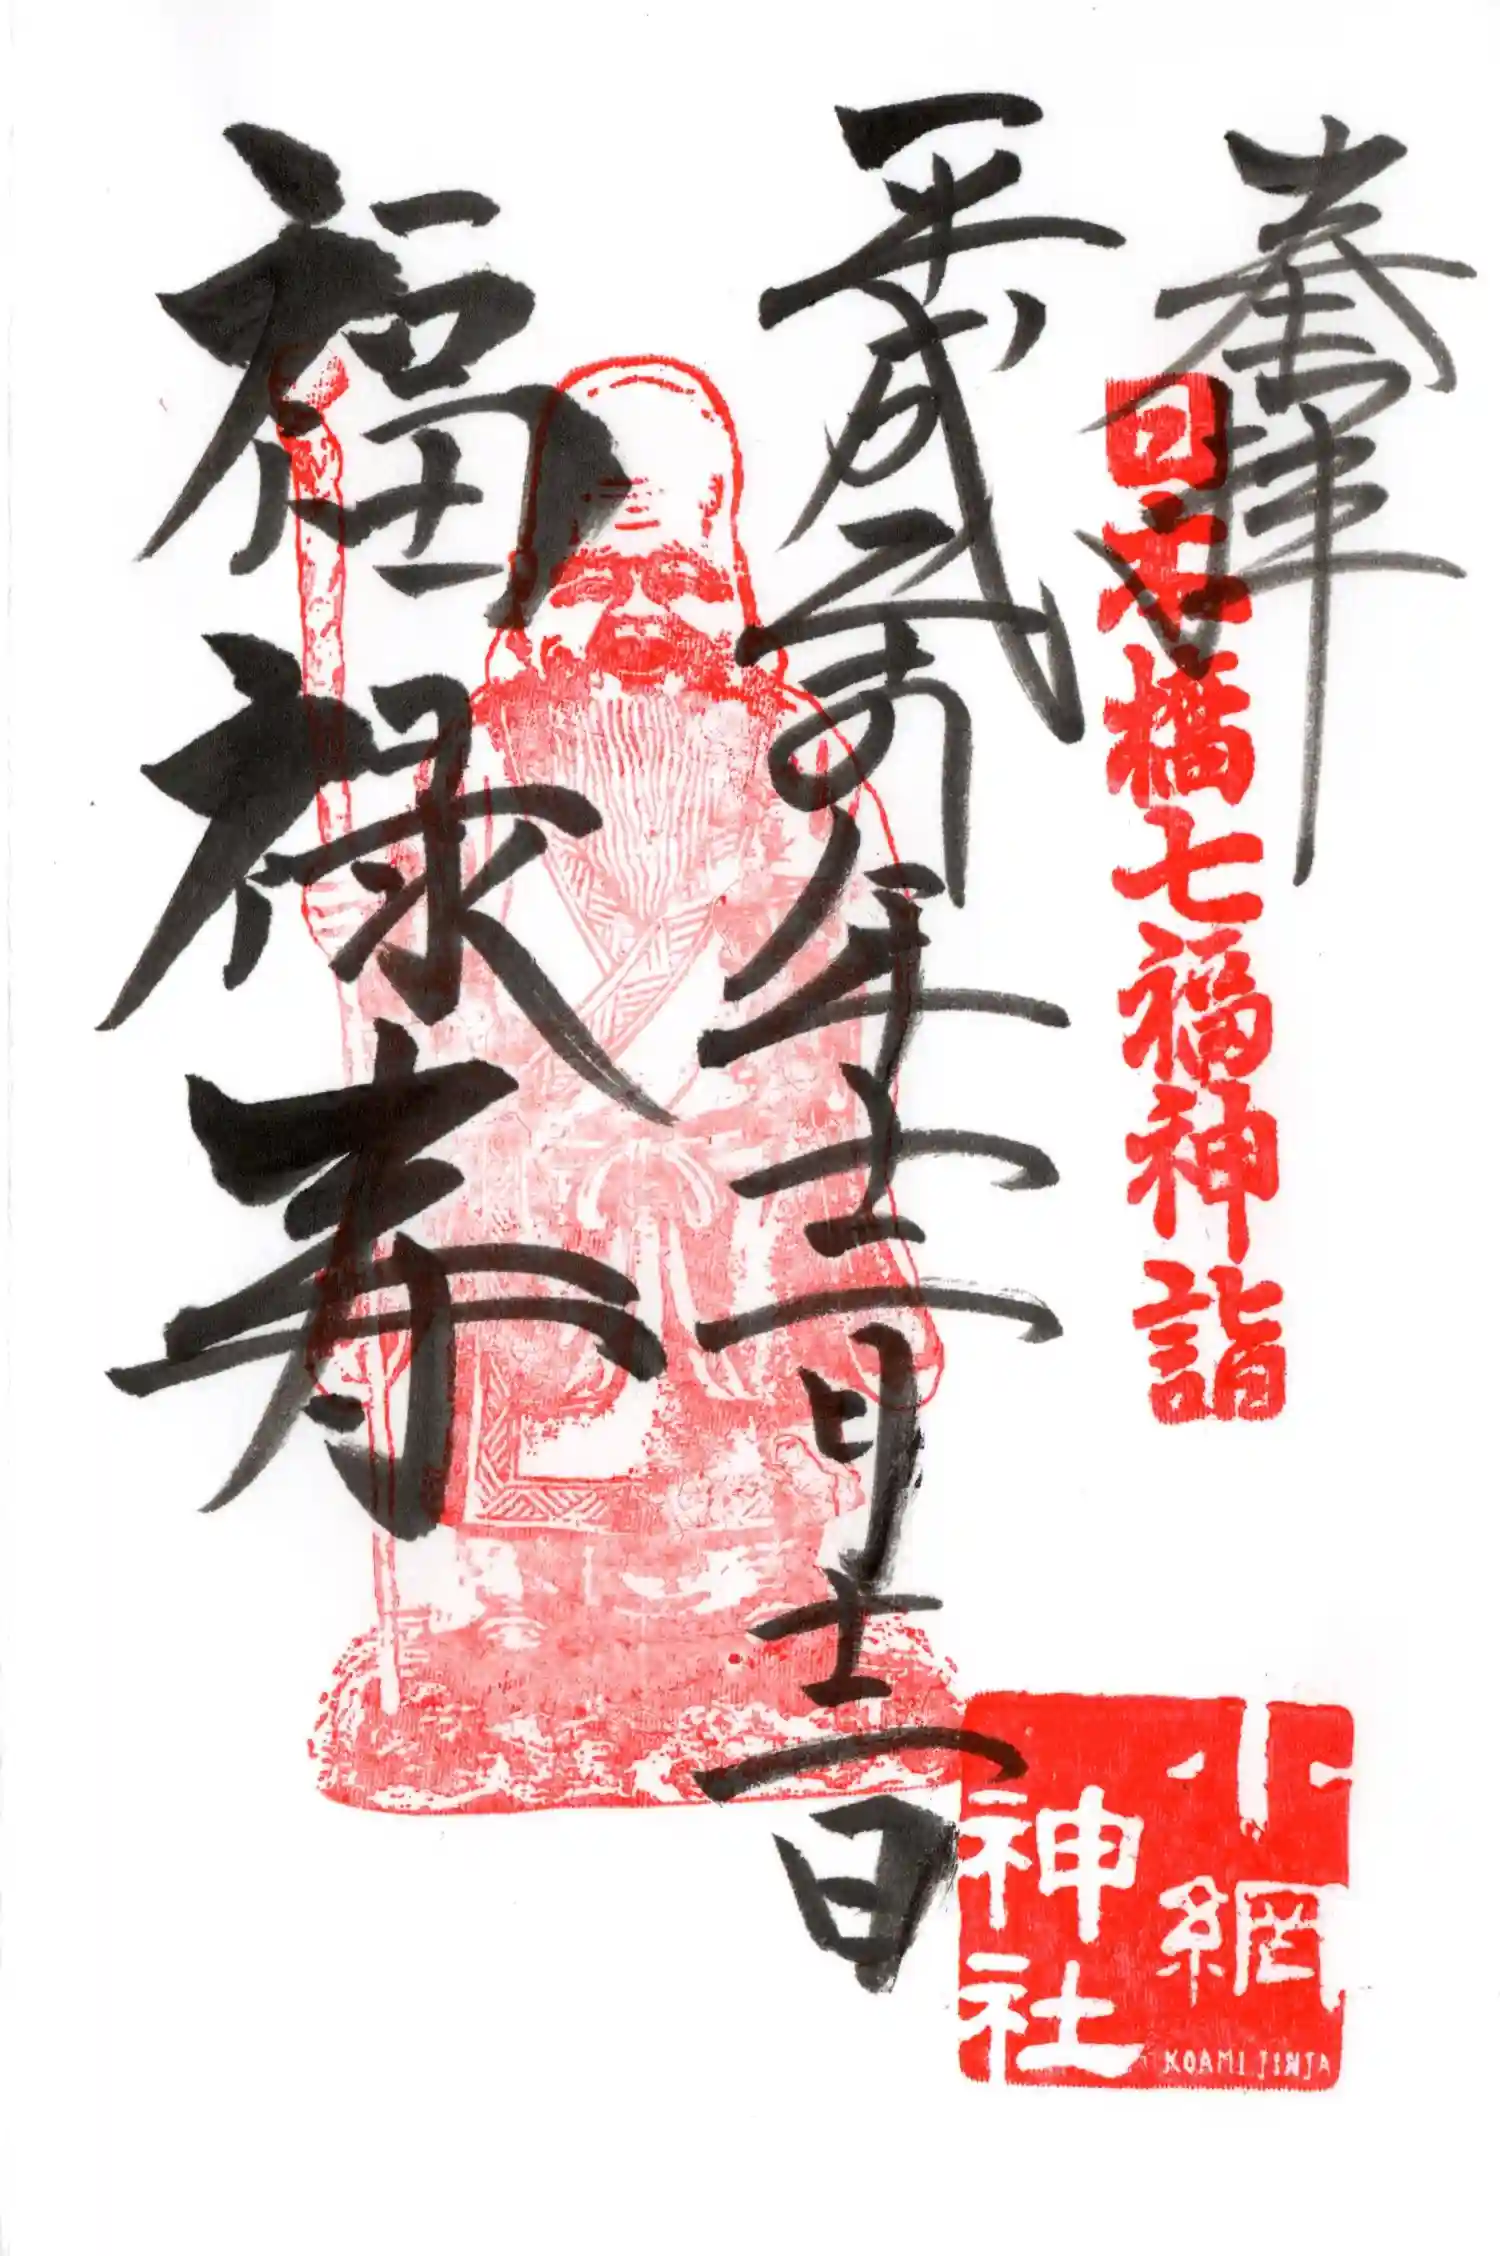 奉拝
日本橋七福神詣
平成 年十二月十二日
福禄寿
小網
神社
KOAMI JINJA